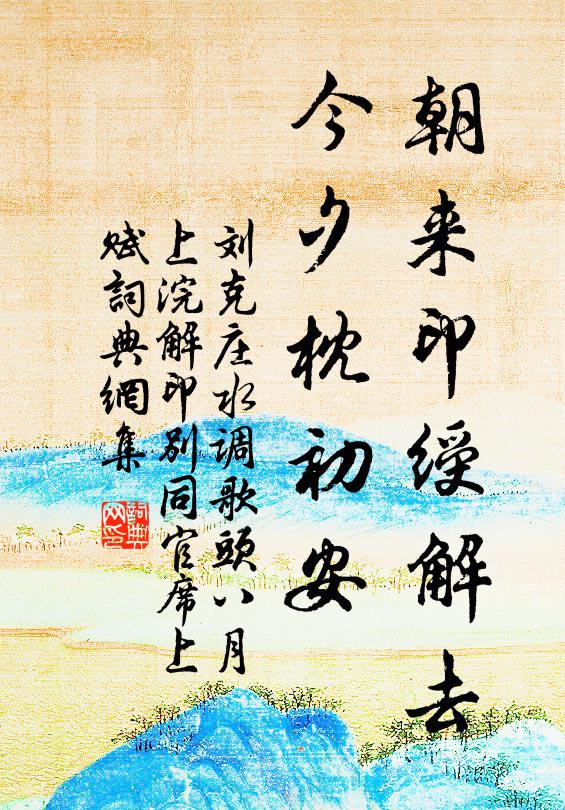 朝来印綬解去
今夕枕初安
刘克庄水调歌頭八月
上浣解印别同官席上
赋詞典網集
詞典